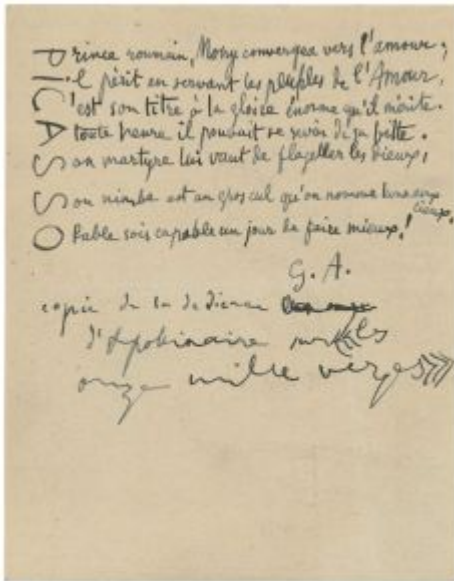 Prince roumain, Mony convergea vers l'amour ;
Il périt en servant les peuples de l'Amour,
C'est son titre à la gloire énorme qu'il mérite.
A toute heure il pouvait se servir de sa bitte.
Son martyre lui vaut de flageller les vieux,
Son nimbe est un gros cul qu'on nomme lune aux
cieux.
O Rable sois capable un jour de faire mieux !
G. A.
copie de la dedicace
d'Apolinaire sur «les
onze mille verges»